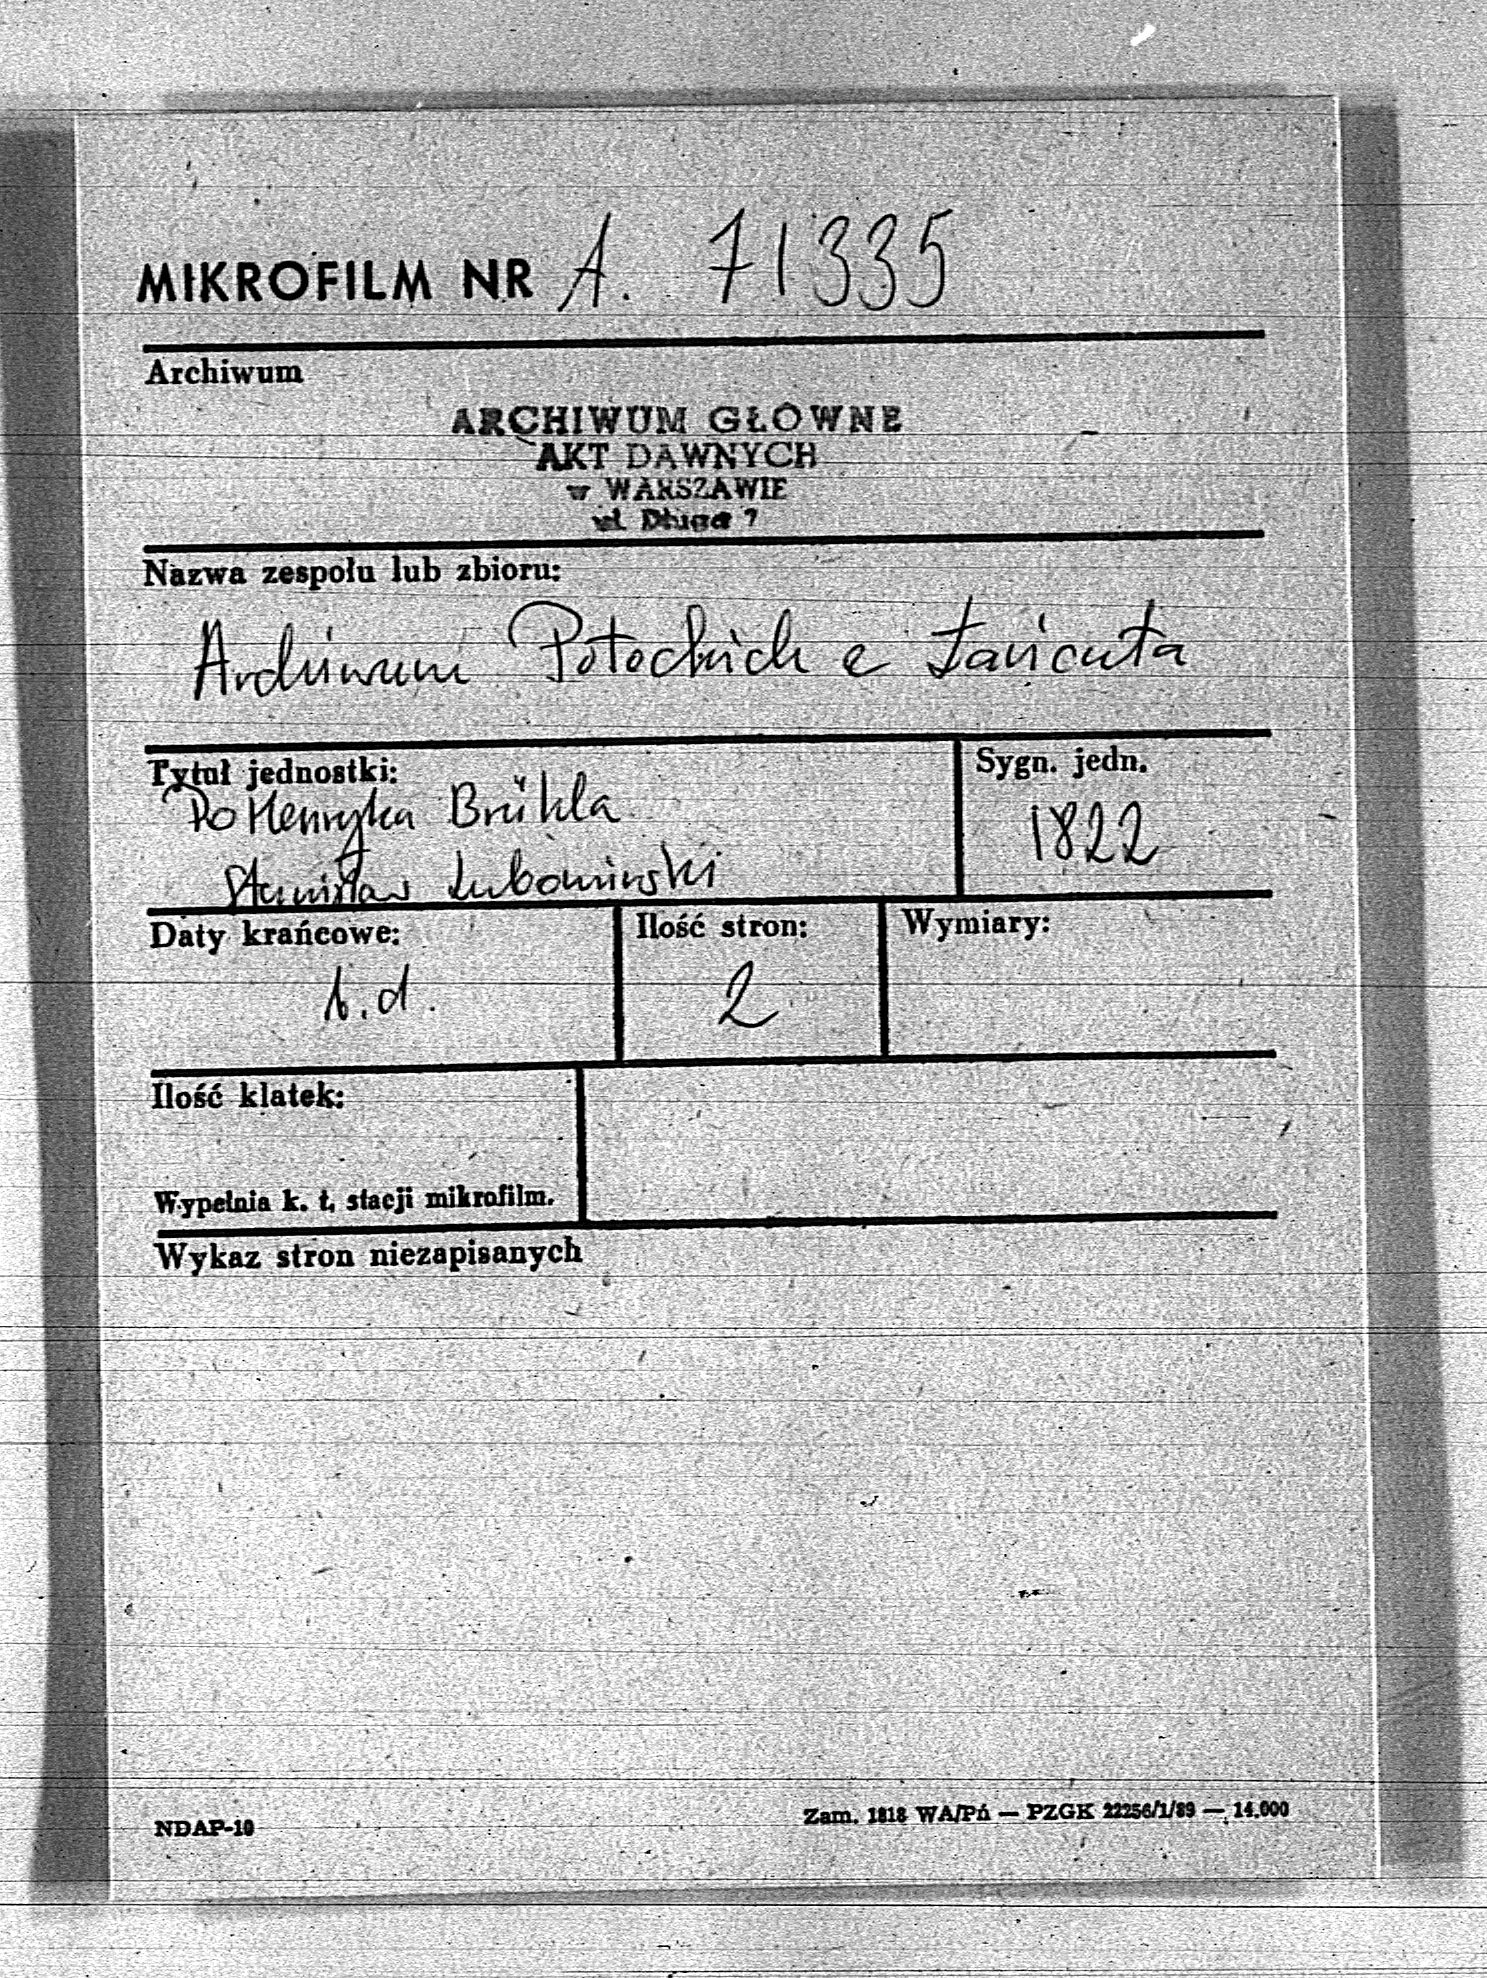 MIKROFILM NR A. 71335
Archiwum
ARCHIWUM GŁÓWNE
AKT DAWNYCH
w WARSZAWIE
ul. Długa 7
Nazwa zespołu lub zbioru:
Archiwum Potockich z Łańcuta
Tytuł jednostki:
Do Henryka Brühla
Stanisław Lubomirski
Sygn. jedn.
1822
Daty krańcowe:
b.d.
Ilość stron:
2
Wymiary:
Ilość klatek:
Wypełnia k. t. stacji mikrofilm.
Wykaz stron niezapisanych
NDAP-10
Zam. 1818 WA/Pń — PZGK 22256/1/89 — 14.000